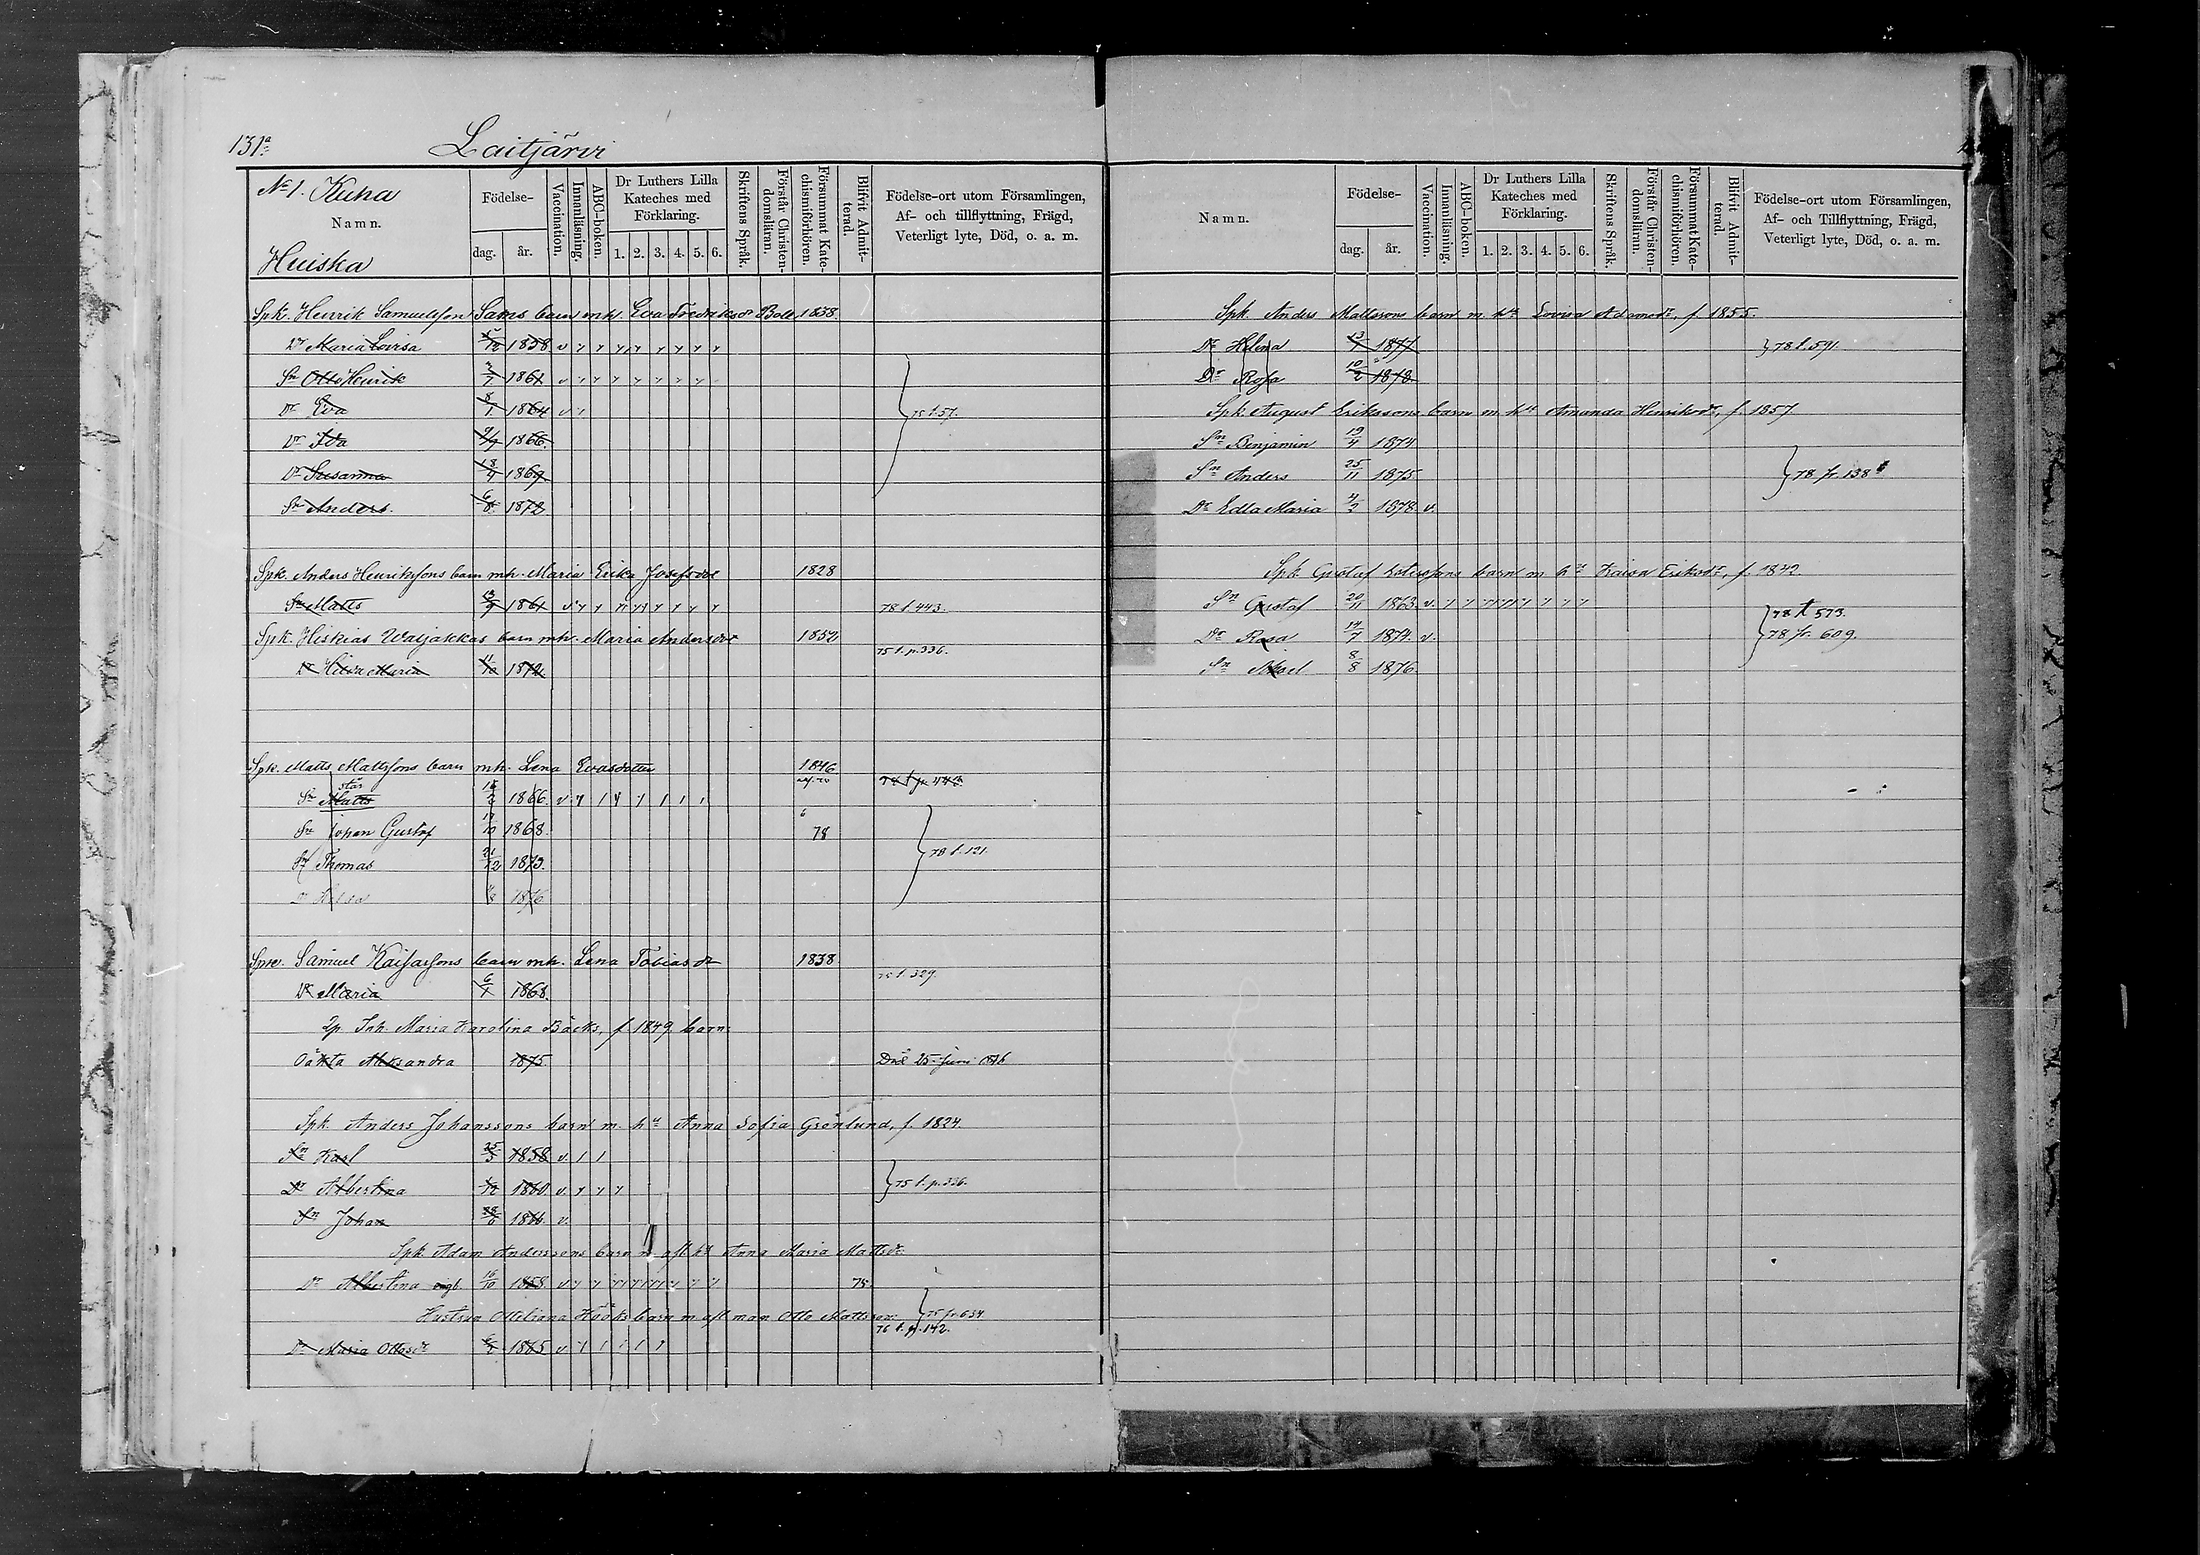 131a
Laitjärvi
No 1. Kuha
Namn.
Huiska
Födelse-
dag.
år.
Vaccination.
Innanläsning.
ABC-boken.
Dr Luthers Lilla Kateches med Förklaring.
1. 2. 3. 4. 5. 6.
Skriftens Språk.
Förstår Christendomsläran.
Försummat Katechismiförhören.
Blifvit Admitterad.
Födelse-ort utom Församlingen,
Af- och tillflyttning, Frägd,
Veterligt lyte, Död, o. a. m.
Spk. Henrik Samuelsson Sams barn mh. Eva Fredriksdr Boll 1838
Dr Maria Lovisa 1858 v
Sn Otto Henrik 2/7 1861 v
Dr Eva 8/1 1864 v 75 t. 57.
Dr Ida 9/7 1866.
Dr Susanna 18/4 1869
Sn Anders. 6/8 1872
Spk. Anders Henrikssons barn mh. Maria Erika Josefsdotr 1828
Sn Matts 13/9 1861 v 78 t. 443.
Spk. Hiskias Waijakkas barn mh. Maria Andersdotr 1852
75 t. p. 336.
Dr Hilda Maria 11/10 1872
Spk. Matts Mattssons barn mh. Lena Evasdotter 1846
Sn Matts 1866. v
Sn Johan Gustaf 17/10 1868. 78
Sn Thomas 21/12 1873. 78 t. 121.
Dr 1876
Samuel Kaisassons barn mh. Lena Tobiasdr 1838
75 t. 329.
Dr Maria 6/1 1868.
Inh. Maria Karolina Bäcks, f. 1849. barn:
Oäkta Aleksandra 1875. Död 25 Juni 1876
Spk. Anders Johanssons barn m. hu Anna Sofia Grönlund, f. 1824.
Sn Karl 25/3 1858 v.
Dr Albertina 1860. v. 75 t. p. 336.
Sn Johan 1866 v.
Spk. Adam Anderssons barn m. afl. hu Anna Maria Mattsdr
Dr Albertina 16/10 1858 v 75.
Hustrun Ottiliana Hööks barn m. afl. man Otto Mattsson 75 fr. 634
76 t. p. 142.
Dr Maria Ottosdr 1865 v
Namn.
Födelse-
dag.
år.
Vaccination.
Innanläsning.
ABC-boken.
Dr Luthers Lilla Kateches med Förklaring.
1. 2. 3. 4. 5. 6.
Skriftens Språk.
Förstår Christendomsläran.
Försummat Katechismiförhören.
Blifvit Admitterad.
Födelse-ort utom Församlingen,
Af- och Tillflyttning, Frägd,
Veterligt lyte, Död, o. a. m.
Spk. Anders Mattssons barn m. hu Lovisa Adamsdr, f. 1855.
Dr Helena 13/1 1877 78 t. 591.
Dr Rosa 10/2 1878
Spk. August Erikssons barn m. hu Amanda Henriksdr, f. 1857
Sn Benjamin 19/4 1874.
Sn Anders 25/11 1875. 78 fr. 138
Dr Edla Maria 4/2 1878. v.
Spk. Gustaf barn m. hu Kaisa Eriksdr, f. 1842.
Sn Gustaf 20/11 1863. v. 78 t. 573.
Dr Rosa 14/7 1874. v. 78 fr. 609.
Sn 8/8 1876.